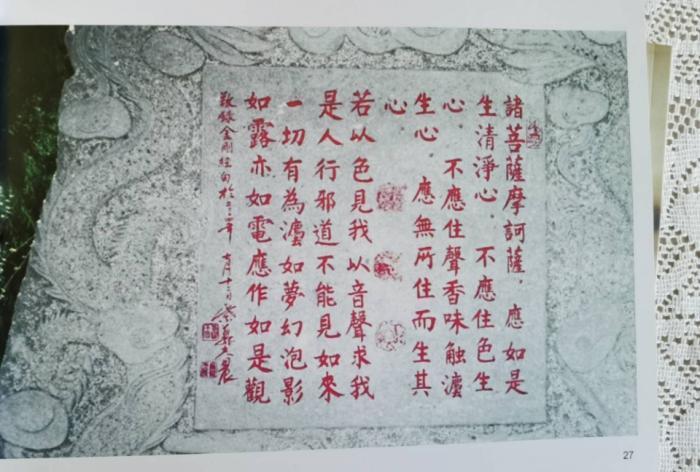 諸菩薩摩訶薩。應如是
生清淨心。不應住色生
心。不應住聲香味触灋
生心。應無所住而生其
心。
若以色見我以音聲求我
是人行邪道不能見如來
一切有為灋如夢幻泡影
如露亦如電應作如是觀
敬錄金剛經句於
27